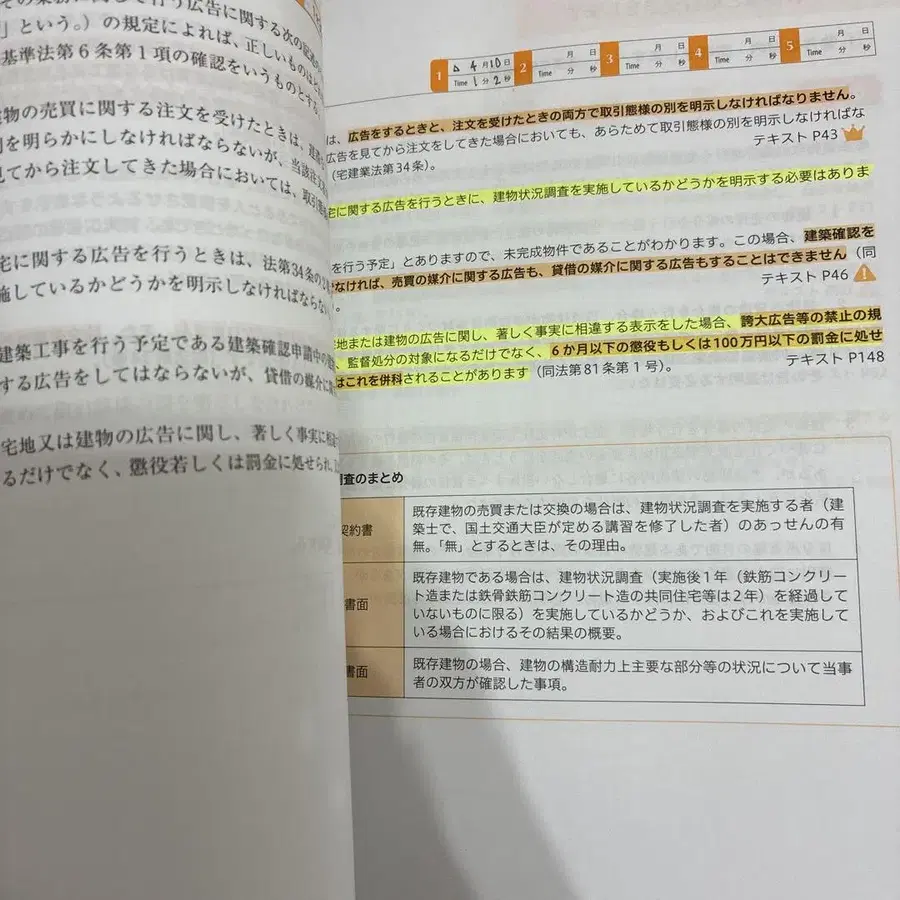 その業務に関して行う広告に関する次の記述
」という。）の規定によれば、正しいものはど
基準法第６条第１項の確認をいうものとする
建物の売買に関する注文を受けたときは、
別を明らかにしなければならないが、当該注文
見てから注文してきた場合においては、取引態
宅に関する広告を行うときは、法第34条の
施しているかどうかを明示しなければならない
建築工事を行う予定である建築確認申請中の
する広告をしてはならないが、貸借の媒介に
宅地又は建物の広告に関し、著しく事実に相違
るだけでなく、懲役若しくは罰金に処せられ、
1 △ 4月10日 2 月 日 3 月 日 4 月 日 5 月 日
Time 1分2秒 Time 分 秒 Time 分 秒 Time 分 秒 Time 分 秒
は、広告をするときと、注文を受けたときの両方で取引態様の別を明示しなければなりません。
広告を見てから注文をしてきた場合においても、あらためて取引態様の別を明示しなければな
（宅建業法第34条）。 テキスト P43
宅に関する広告を行うときに、建物状況調査を実施しているかどうかを明示する必要はありま
を行う予定」とありますので、未完成物件であることがわかります。この場合、建築確認を
なければ、売買の媒介に関する広告も、貸借の媒介に関する広告もすることはできません（同
）。 テキスト P46
地または建物の広告に関し、著しく事実に相違する表示をした場合、誇大広告等の禁止の規
、監督処分の対象になるだけでなく、6か月以下の懲役もしくは100万円以下の罰金に処せ
はこれを併科されることがあります（同法第81条第１号）。 テキスト P148
調査のまとめ
契約書 既存建物の売買または交換の場合は、建物状況調査を実施する者（建
築士で、国土交通大臣が定める講習を修了した者）のあっせんの有
無。「無」とするときは、その理由。
書面 既存建物である場合は、建物状況調査（実施後１年（鉄筋コンクリー
ト造または鉄骨鉄筋コンクリート造の共同住宅等は２年）を経過して
いないものに限る）を実施しているかどうか、およびこれを実施して
いる場合におけるその結果の概要。
書面 既存建物の場合、建物の構造耐力上主要な部分等の状況について当事
者の双方が確認した事項。